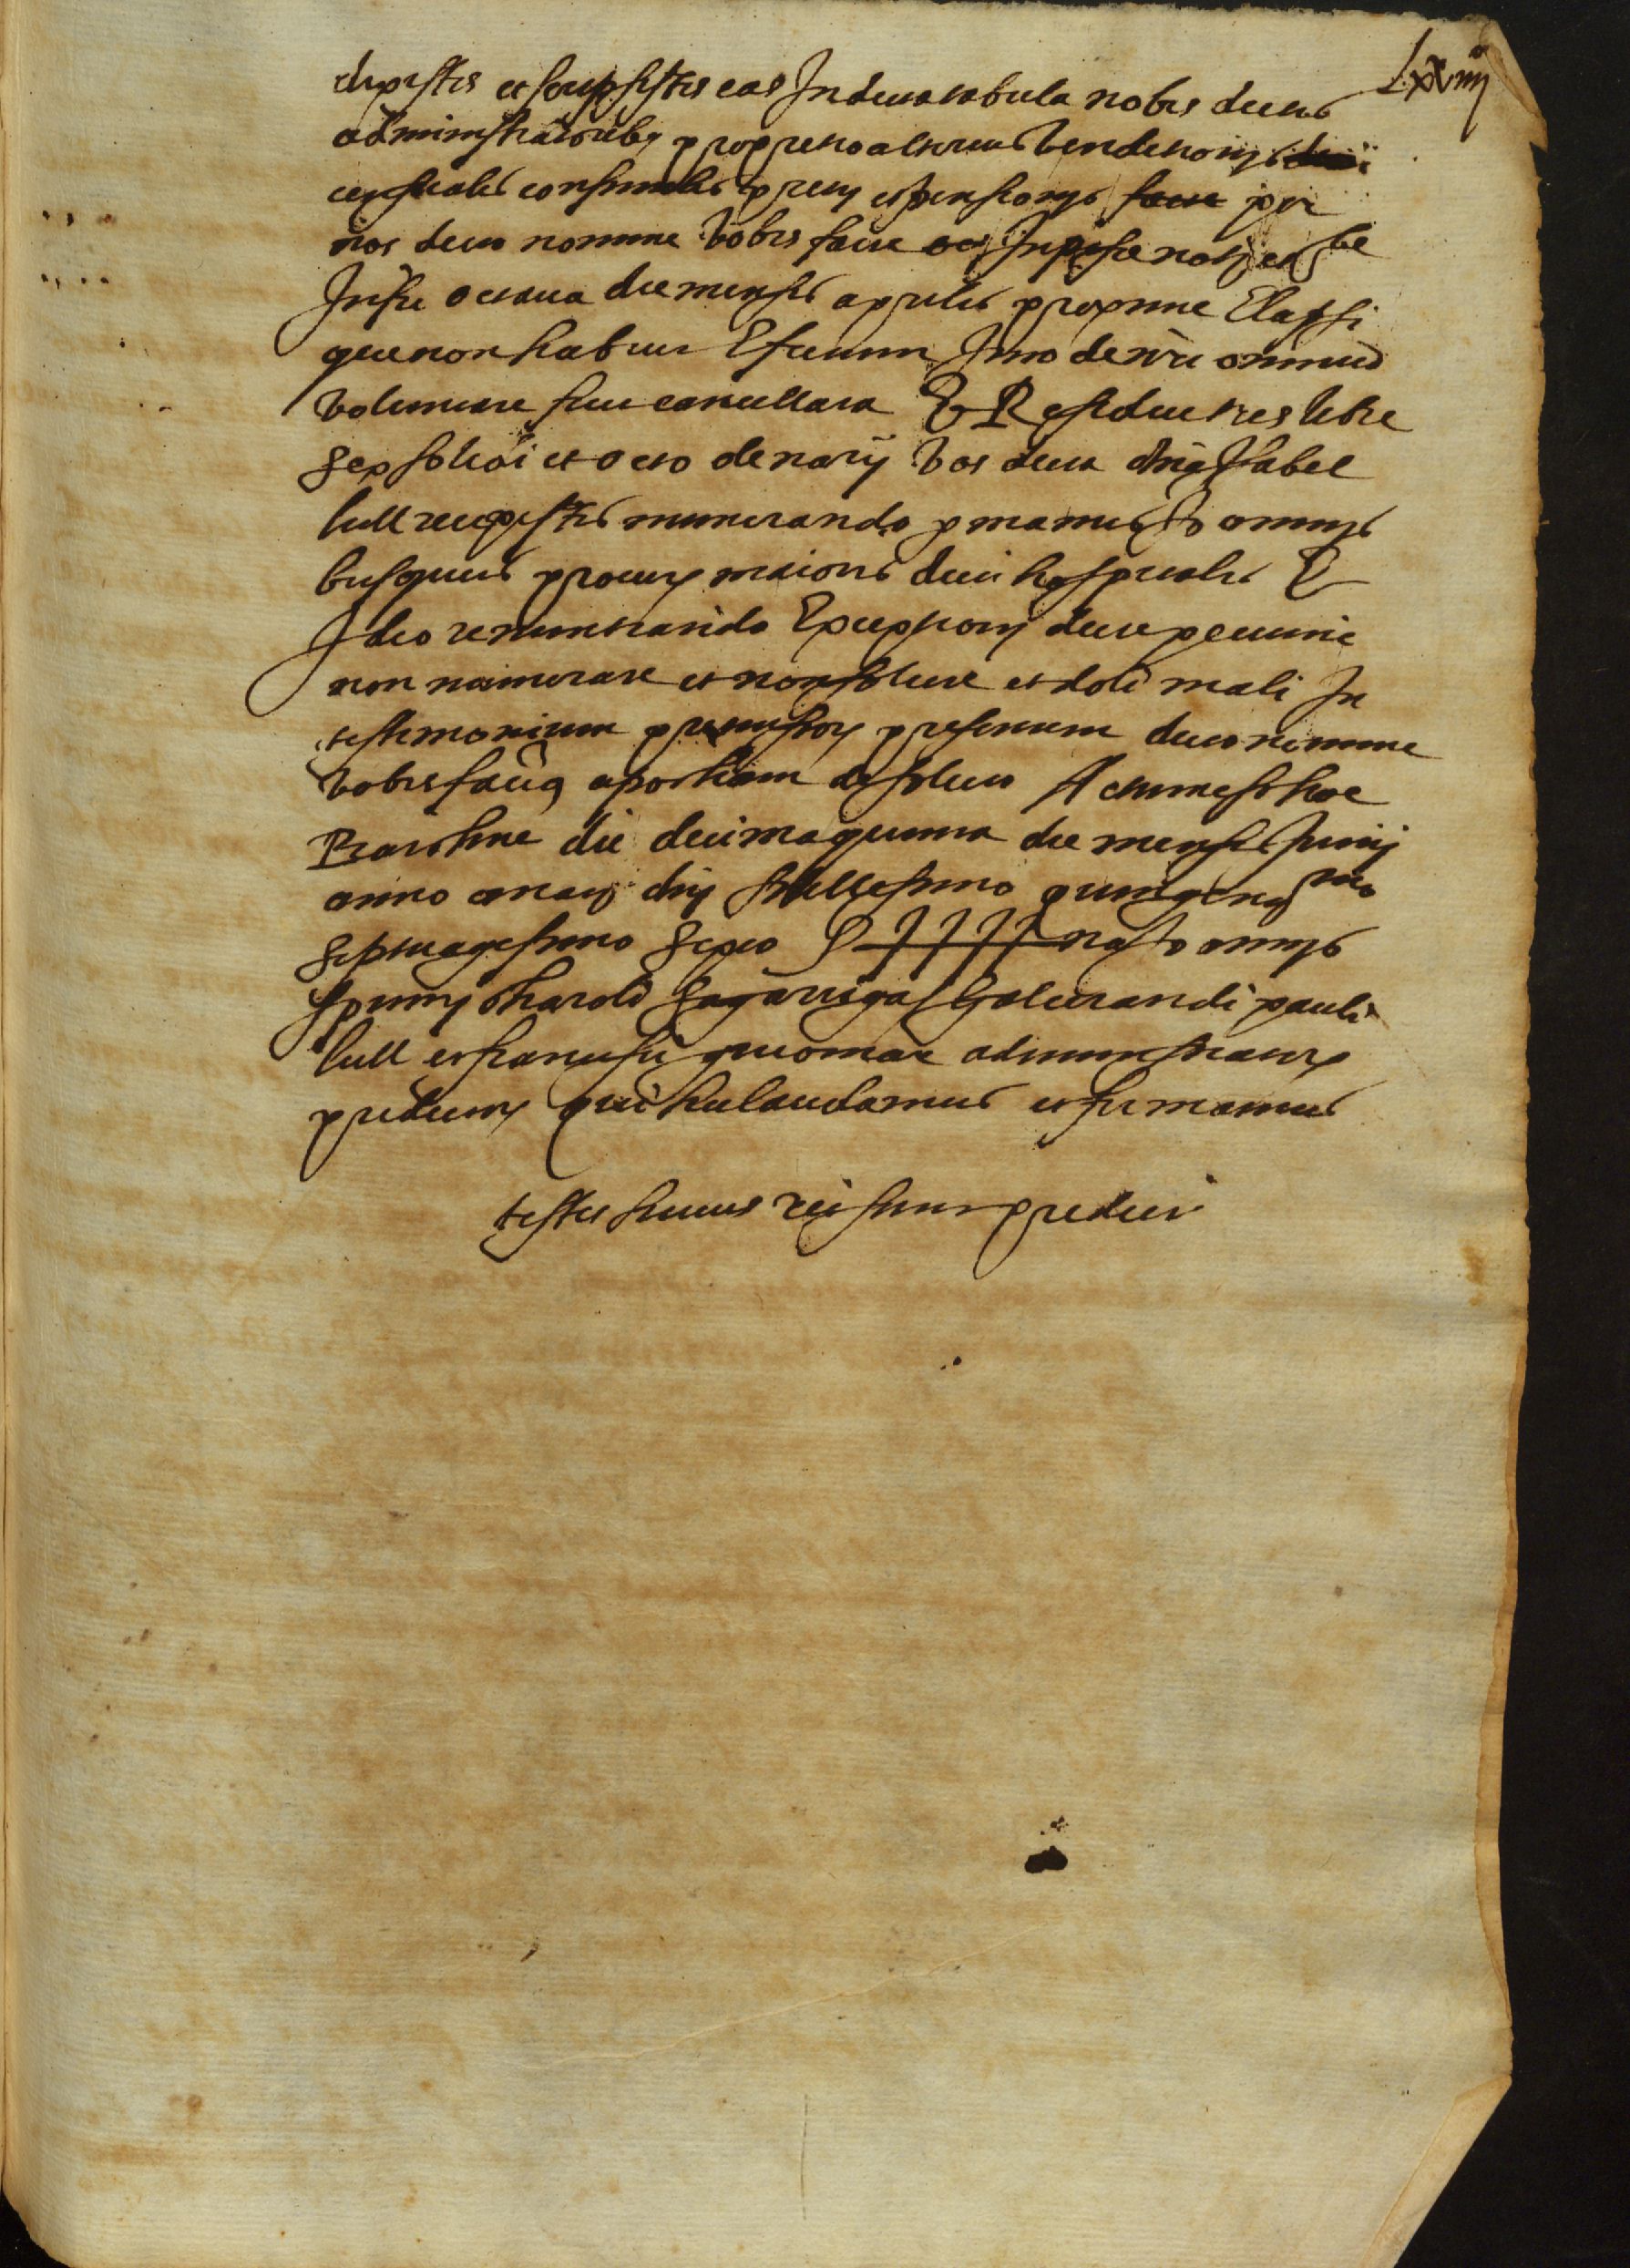 Lxviiij
dixistis et scripsistis eas In dicta tabula nobis dictis
administratoribus pro precio alterius venditionis
censualis consimilis precii et pensionis facte per
nos dicto nomine vobis facte in posse notarii
Infri octaua die mensis aprilis proxime Elapsi
que non habuit Efectum Imo de nostri omnium
voluntate fuit cancellata Et Residue tres libre
sex solidi et octo denarii vos dicta dna Isabel
lull recepistis numerando per manus
busquets procur maioris dicti hospitalis Et
Ideo renuntiando Exceptioni dicte pecunie
non numerate et non solute et doli mali In
testimonium premissor presentem dicto nomine
vobis facimus apocham de soluto Actum est hoc
Barchne die decima quinta die mensis Junii
anno a nat dni Millessimo quingent mo
septuagessimo sexto S++++na
pauli
lull et francisci administrator
predictor qui hec laudamus et firmamus
testes huius rei sunt predicti